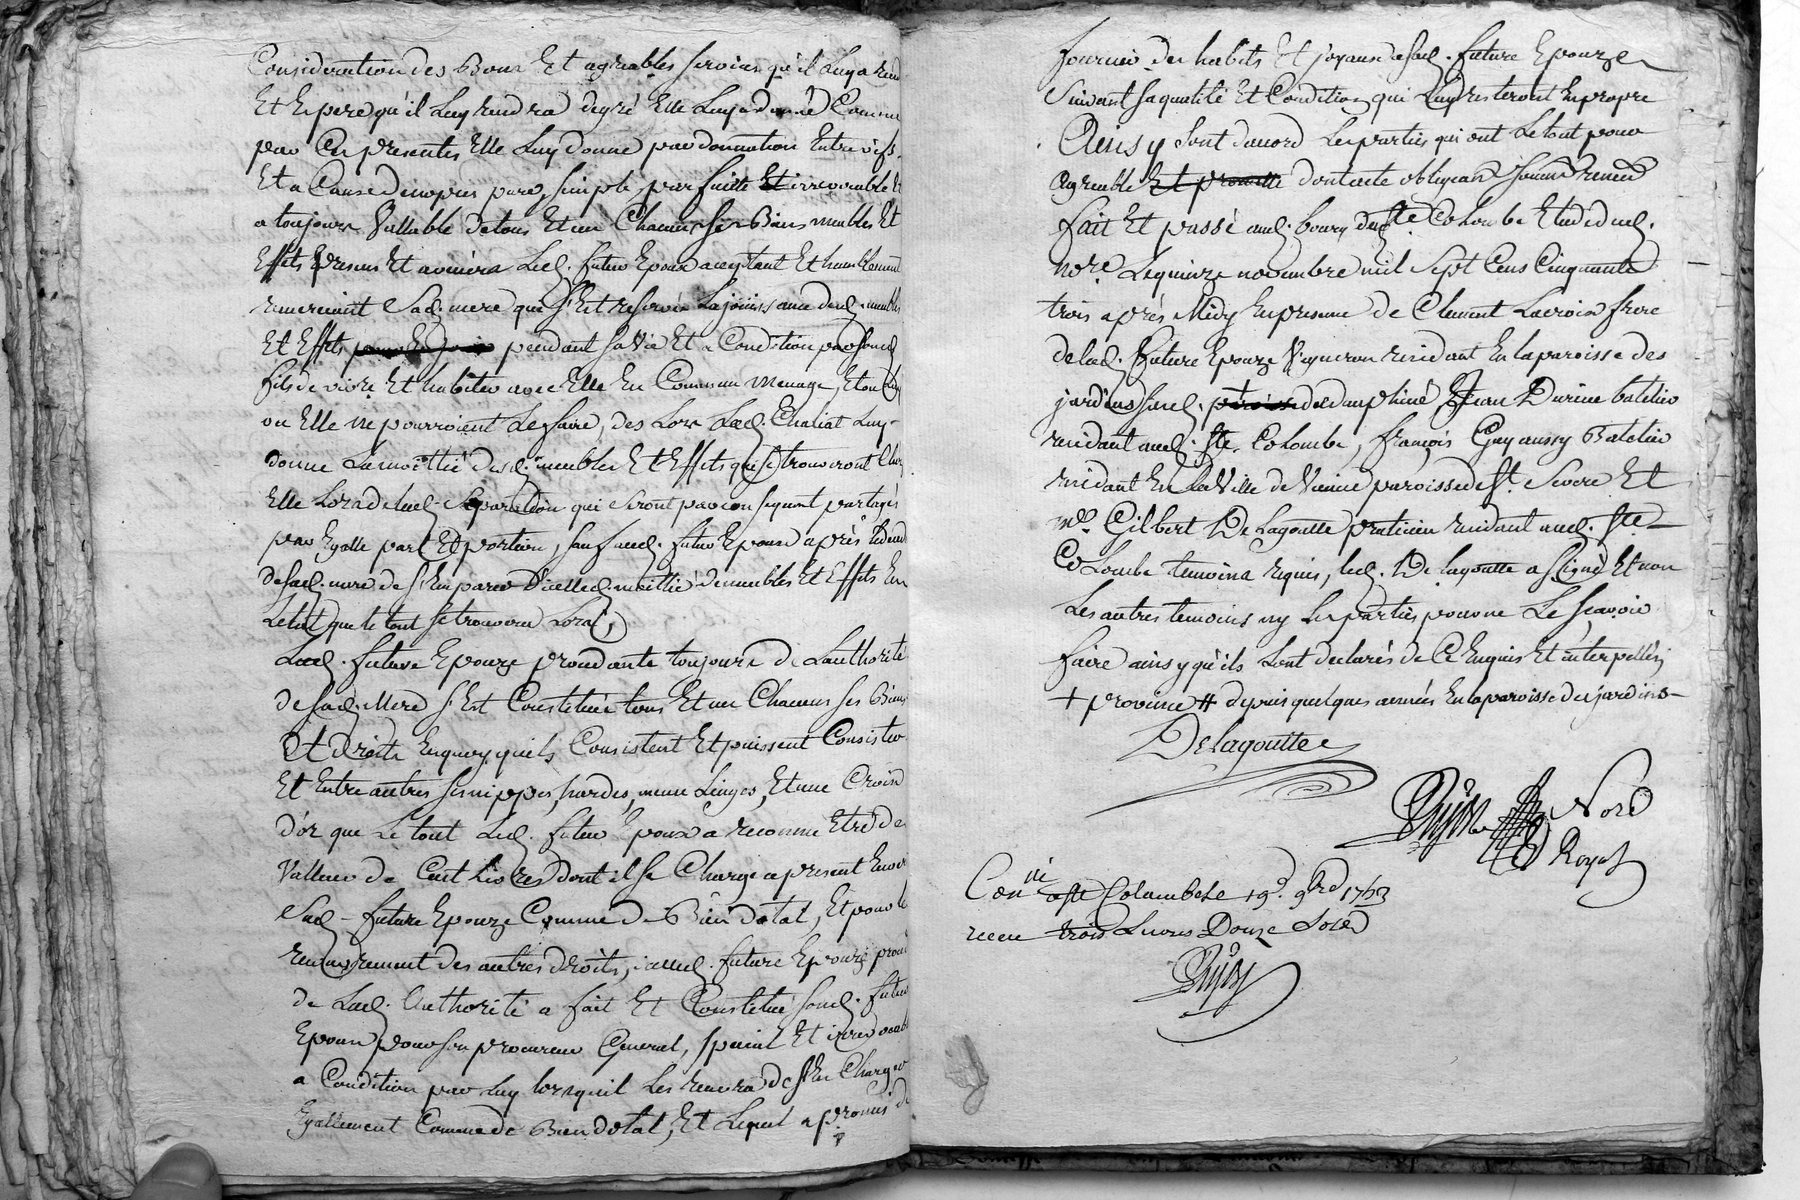 Consideration des Bons Et agreables services qu'il Luy a rend
Et Espere qu'il Luy rendra degré Elle Luy a donné Comme
par Ces presentes Elle Luy donne par donnation Entre vifs
Et a Cause de nopces pure, simple, parfaitte Et irrevocable Et
a toujours Vallable de tous Et un Chacuns ses Biens meubles Et
Effets presens Et avenirs Led. futur Epoux aceptant Et humblement
remerciant Sad. mere qui s'Est reservée La joüissance desd. meubles
Et Effets pendant sa Vie Et a Condition par sond.
fils de vivre Et habiter avec Elle En Commun menage, Et ou Luy
ou Elle ne pourroient Le faire, des Lors Lad. Chaliat Luy
donne La moittié desd. meubles Et Effets qui se trouveront Chez
Elle Lors de lad. Separation qui seront par consequent partagés
par Egalle part Et portion, sauf aud. futur Epoux après Le deced
de sad. mere de s'Emparer D'icelled. moittié de meubles Et Effets En
Letat que le tout se trouvera Lors,
Lad. future Epouze procedante toujours de Lauthorité
de sad. Mere s'Est Constituée tous Et un Chacuns ses Biens
Et droits Enquoy qu'ils Consistent Et puissent Consister
Et Entre autres ses nippes, hardes, menu Linges, Et une Croix
d'or que Le tout Led. futur Epoux a reconnu Etre de
Valleur de Cent Livres dont il se Charge a present Envers
Sad. future Epouze Comme de Bien dotal, Et pour le
recouvrement des autres droits, icelled. future Epouze
de Lad. Authorité a fait Et Constitué sond. futur
Epoux pour son procureur General, special Et irrevocable
a Condition par Luy lorsquil Les recevra de s'En Charger
Egallement Comme de Bien dotal, Et Lequel a promis de
fournir des habits Et joyaux a sad. future Epouze
Suivant sa qualité Et Condition qui Luy resteront En propre
Ainsy Sont d'acord Les parties qui ont Le tout pour
Agreable Et promette dont acte obligeant soumett renonc
fait Et passé aud. bourg dud. Ste. Colombe Etude dud.
nore. Le quinze novembre mil Sept Cens Cinquante
trois après Midy En presence de Clement Lacroix frere
de lad. future Epouze Vigneron residant En la paroisse des
jardins sud. paroisse de dauphiné, # Jean Durieu batelier
residant aud. Ste. Colombe, françois Guy aussy Batelier
residant En La Ville de Vienne paroisse de St. Severe Et
me. Gilbert De Lagoutte praticien residant aud. Ste.
Colombe temoins requis, led. De lagoutte a signé Et non
Les autres temoins ny Les parties pour ne Le sçavoir
faire ainsy qu'ils Sont declarés de Ce Enquis Et interpellés
+ province # depuis quelques années En la paroisse des jardins
Delagoutte
Guyot Nore
Royal
Con.lé a Ste Colombe le 19e. 9bre 1753
receu trois Livres Douze Sols
Guyot